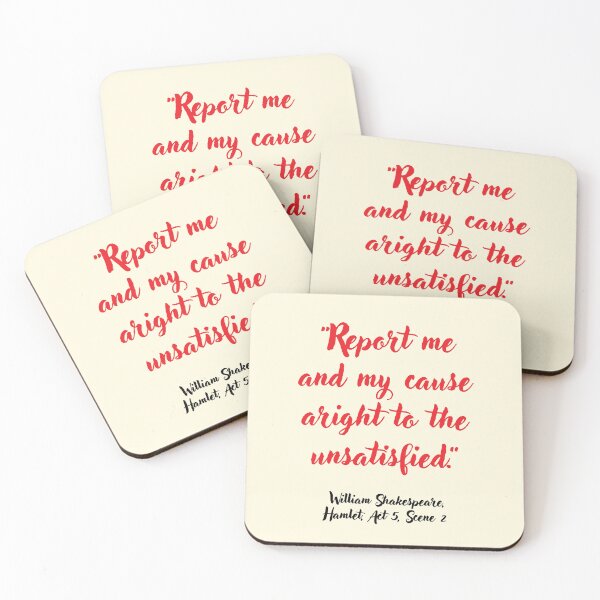 "Report me
and my cause
aright to the
"Report me
and my cause
aright to the
unsatisfied."
"Report me
and my cause
aright to the
William
Hamlet, Act 5
"Report me
and my cause
aright to the
unsatisfied."
William Shakespeare,
Hamlet, Act 5, Scene 2